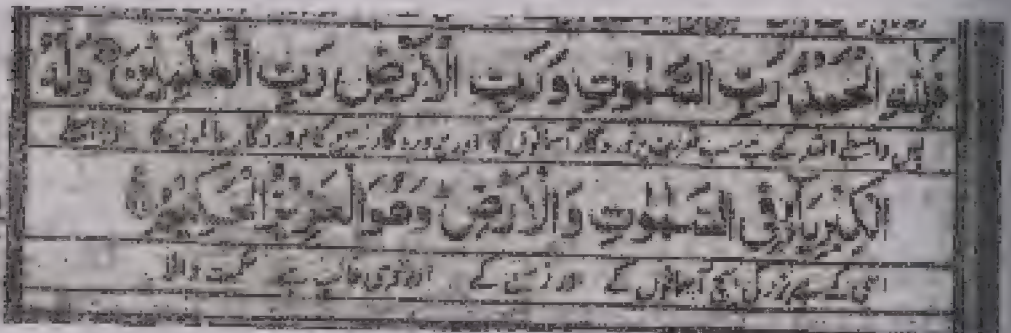 فَلِلّٰهِ الْحَمْدُ رَبِّ السَّمٰوٰتِ وَرَبِّ الْاَرْضِ رَبِّ الْعٰلَمِيْنَ ۝ وَلَهُ
پس واسطے اللہ کے ہے سب تعریف پروردگار آسمانوں کا اور پروردگار زمین کا پروردگار عالموں کا
الْكِبْرِيَآءُ فِي السَّمٰوٰتِ وَالْاَرْضِ وَهُوَ الْعَزِيْزُ الْحَكِيْمُ ۝
اسی کے ہے بزرگی بیچ آسمانوں کے اور زمین کے اور وہی غالب ہے حکمت والا